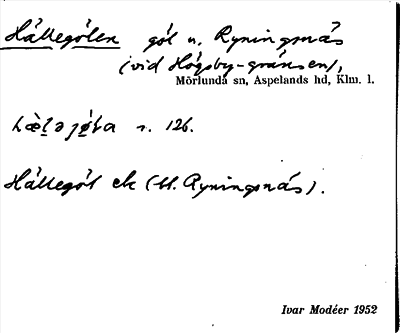 Hällegölen göl n. Ryningsnäs
(vid Högsby-gränsen),
Mörlunda sn, Aspelands hd, Klm. l.
hæ̀ləjø̀la s. 126.
Hällegöl ek (tl. Ryningsnäs).
Ivar Modéer 1952